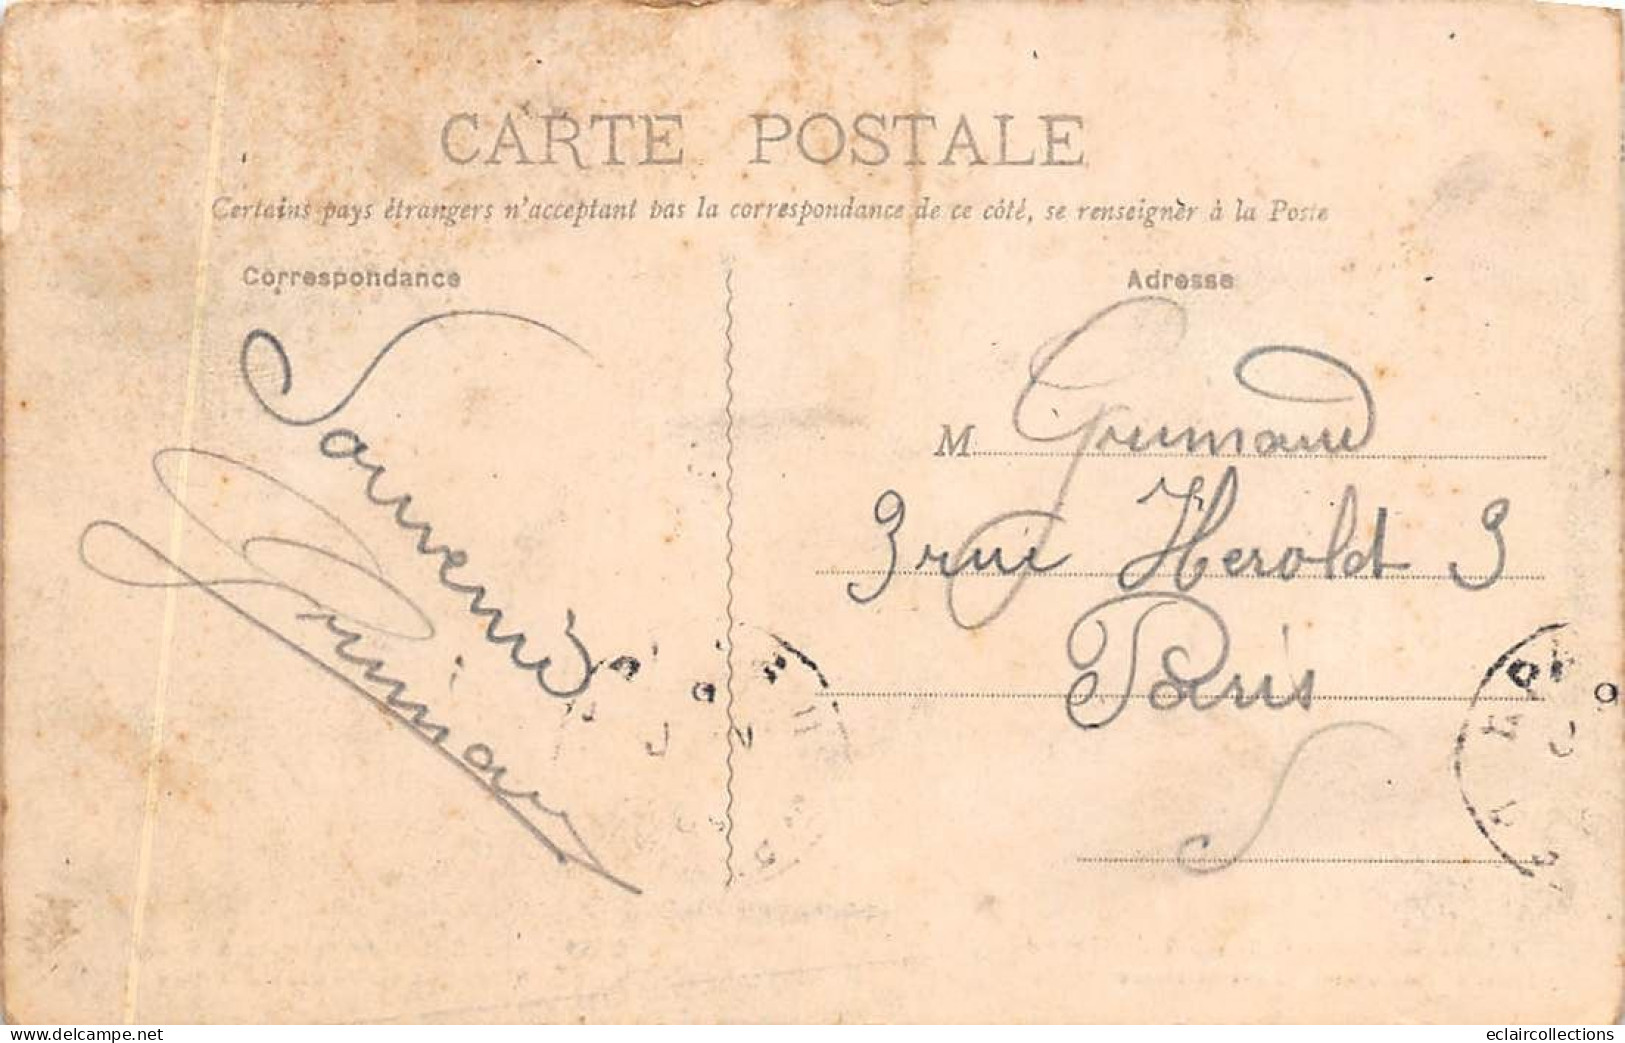 CARTE POSTALE
Certains pays étrangers n'acceptent pas la correspondance de ce côté, se renseigner à la Poste
Correspondance
Adresse
Souvenir
Grimaud
M Grimaud
3 rue Herold 3
Paris
delcampe.net
eclaircollections